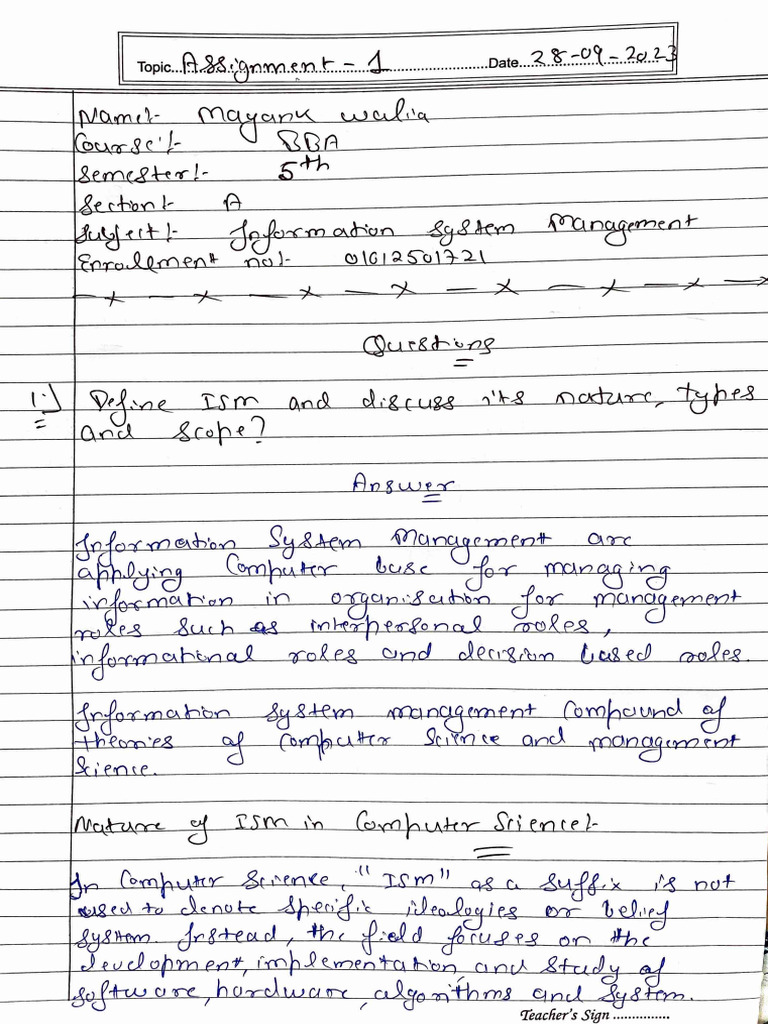 Topic...Assignment - 1 ........................Date...28-09-2023
Name:- Mayank Walia
Course:- BBA
Semester:- 5th
Section:- A
Subject:- Information System Management
Enrollement no:- 01612501721
Questions
1.) Define ISM and discuss its nature, types
and scope?
Answer
Information System Management are
applying Computer base for managing
information in organisation for management
roles such as interpersonal roles,
informational roles and decision based roles.
Information system management compound of
theories of computer science and management
science.
Nature of ISM in Computer Science:-
In Computer Science, "ISM" as a suffix is not
used to denote specific idealogies or belief
system. Instead, the field focuses on the
development, implementation, and study of
software, hardware, algorithms and system.
Teacher's Sign ...............